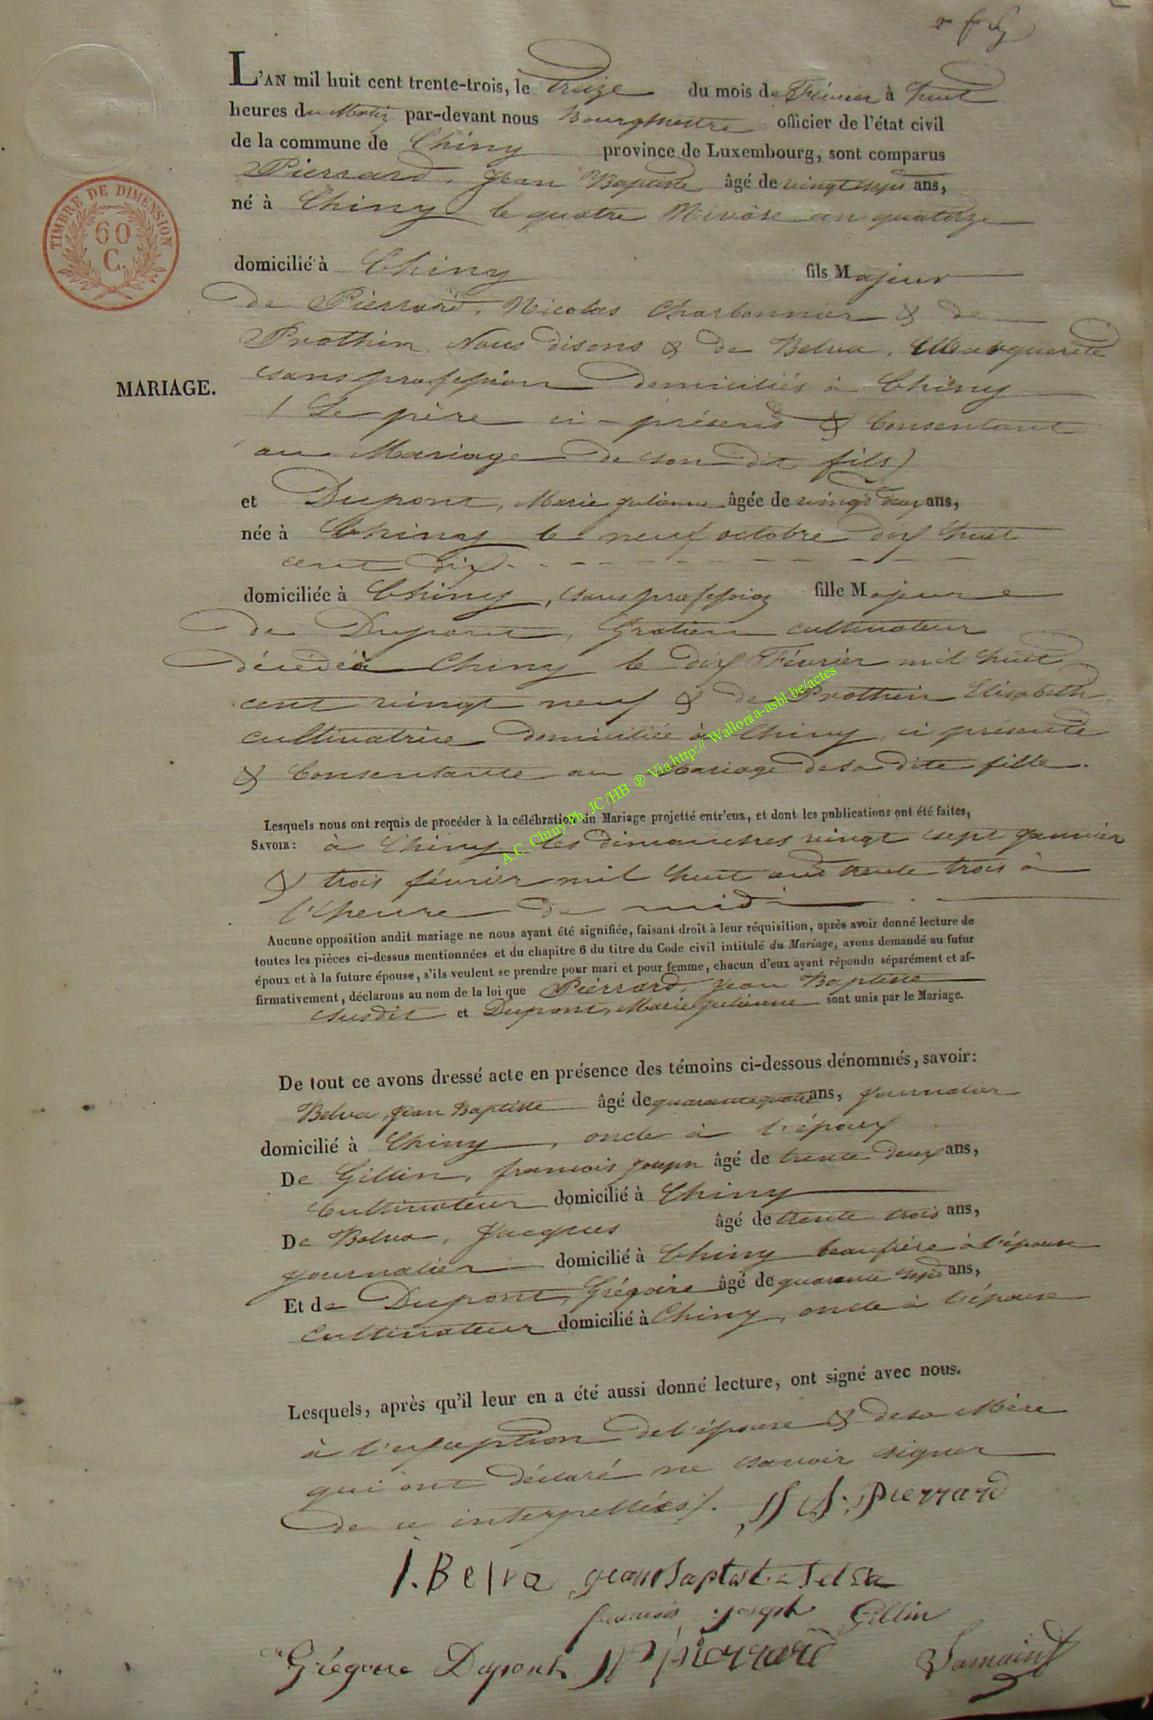 L'AN mil huit cent trente-trois, le treize du mois de Février à huit
heures du Matin par-devant nous Bourgmestre officier de l'état civil
de la commune de Chiny province de Luxembourg, sont comparus
Pierrard, Jean Baptiste âgé de vingt sept ans,
né à Chiny le quatre Nivôse an quatorze
TIMBRE DE DIMENSION
60
C.
domicilié à Chiny fils Majeur
de Pierrard, Nicolas Charbonnier & de
Prothin, Nous disons & de Belva, Marguerite
sans profession domiciliés à Chiny
MARIAGE.
( Le père ci-présent & Consentant
au Mariage de son dit fils)
et Dupont, Marie Julienne âgée de vingt deux ans,
née à Chiny le neuf octobre dix huit
cent dix
domiciliée à Chiny, sans profession fille Majeure
de Dupont, Gratien cultivateur
décédé à Chiny le dix Février mil huit
cent vingt neuf & de Prothin Elisabeth
cultivatrice domiciliée à Chiny, ci présente
& Consentante au Mariage de sa dite fille.
A.C. Chiny Ph. JC /HB ® Via http:// Wallonia-asbl.be/actes
Lesquels nous ont requis de procéder à la célébration du Mariage projetté entr'eux, et dont les publications ont été faites,
SAVOIR: à Chiny les dimanches vingt sept janvier
& trois février mil huit cent trente trois à
l'heure de midi
Aucune opposition audit mariage ne nous ayant été signifiée, faisant droit à leur réquisition, après avoir donné lecture de
toutes les pièces ci-dessus mentionnées et du chapitre 6 du titre du Code civil intitulé du Mariage, avons demandé au futur
époux et à la future épouse, s'ils veulent se prendre pour mari et pour femme, chacun d'eux ayant répondu séparément et af-
firmativement, déclarons au nom de la loi que Pierrard, Jean Baptiste
susdit et Dupont, Marie Julienne sont unis par le Mariage.
De tout ce avons dressé acte en présence des témoins ci-dessous dénommés, savoir:
Belva, Jean Baptiste âgé de quarante quatre ans, journalier
domicilié à Chiny, oncle à l'époux
De Gillin, françois joseph âgé de trente deux ans,
Cultivateur domicilié à Chiny
De Belva, Jacques âgé de trente trois ans,
journalier domicilié à Chiny beaufrère à l'épouse
Et de Dupont, Grégoire âgé de quarante sept ans,
Cultivateur domicilié à Chiny, oncle à l'épouse
Lesquels, après qu'il leur en a été aussi donné lecture, ont signé avec nous.
à l'exception de l'épouse & de sa Mère
qui ont déclaré ne savoir signer
de ce interpellées/. Pierrard
J. Belva Jean Baptiste Belva
francois joseph Gillin
Grégoire Dupont N Pierrard Lamaint